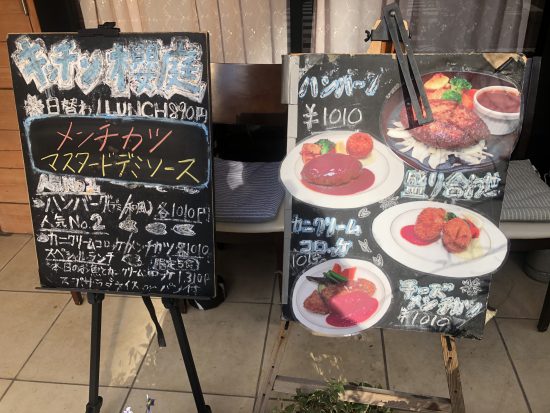 キチン櫻庭
日替わりLUNCH 890円
メンチカツ
マスタードデミソース
人気No.1
ハンバーグ(デミ/和風) 各1010円
人気No.2
カニクリームコロッケ メンチカツ 各1010
スペシャルランチ
本日のお魚 カニクリームコロッケ 1,310円
スープ サラダ ライス or パン付
ハンバーグ
¥1010
盛り合わせ
カニクリーム
コロッケ
1010
チーズ
メンチカツ
¥1010